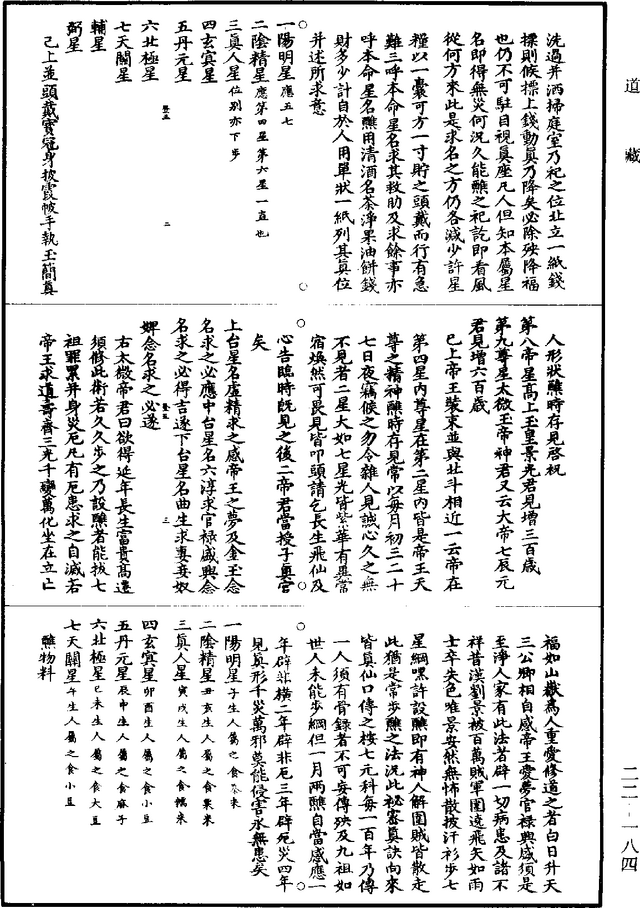 道藏
洗過并洒掃庭室乃祀之位北立一紙錢
摽則候摽上錢動真乃降矣必除殃降福
也仍不可駐目視真座凡人但知本屬星
名即得無災何況久能醮之祀訖即看風
從何方來此是求名之方仍各減少許星
糧以一囊可方一寸貯之頭戴而行有急
難三呼本命星名求其救助及求餘事亦
呼本命星名醮用清酒名茶淨果油餅錢
財多少計自於人用單狀一紙列其真位
并述所求意
一陽明星應五七
二陰精星應第四星第六星一直也
三真人星位別亦下步
四玄冥星
五丹元星
六北極星
七天關星
輔星
弼星
已上並頭戴寶冠身披霞帔手執玉簡真
人形狀醮時存見啓祝
第八帝星高上玉皇景光君見增三百歲
第九尊星太微玉帝神君又云大帝七辰元
君見增六百歲
已上帝王裝束並與北斗相近一云帝在
第四星內尊星在第二星內皆是帝王天
尊之精神醮時存見常以每月初三二十
七日夜竊候之勿令雜人見誠心久之無
不見者二星大如七星光皆紫華有異當
宿煥然可畏見皆叩頭請乞長生飛仙及
心告臨時既見之後二帝君當授子真官
矣
上台星名虛精求之感帝王之夢及金玉念
名求之必應中台星名六淳求官祿盛興念
名求之必得吉遂下台星名曲生求妻妾奴
婢念名求之必遂
右太微帝君曰欲得延年長生富貴高遷
須修此術若久久步之乃設醮者能拔七
祖罪累并身災厄凡有厄患求之自滅若
帝王求道壽齊三光千變萬化坐在立亡
福如山嶽為人重愛修道之者白日升天
三公卿相自感帝王愛夢官祿興盛須是
至淨人家有此法者辟一切病患及諸不
祥昔漢劉景被百萬賊軍圍遶飛矢如雨
士卒失色唯景安然無怖散披汗衫步七
星綱嘿許設醮即有神人解圍賊皆散走
此猶是常步醮之法況此祕審真訣向來
皆真仙口傳之按七元科每一百年乃傳
一人須有骨錄者不可妄傳殃及九祖如
世人未能步綱但一月兩醮自當感應一
年辟非橫二年辟非厄三年辟死災四年
見真形千災萬邪莫能侵害永無患矣
一陽明星子生人屬之食黍米
二陰精星丑亥生人屬之食粟米
三真人星寅戌生人屬之食糯米
四玄冥星卯酉生人屬之食小豆
五丹元星辰申生人屬之食麻子
六北極星巳未生人屬之食大豆
七天關星午生人屬之食小豆
醮物料
二二一一八四